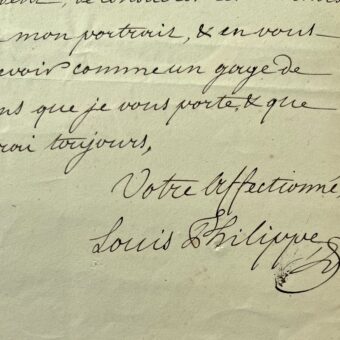 mon portrait, & en vous
evoir comme un gage de
ns que je vous porte, & que
rai toujours,
Votre Affectionné,
Louis Philippe